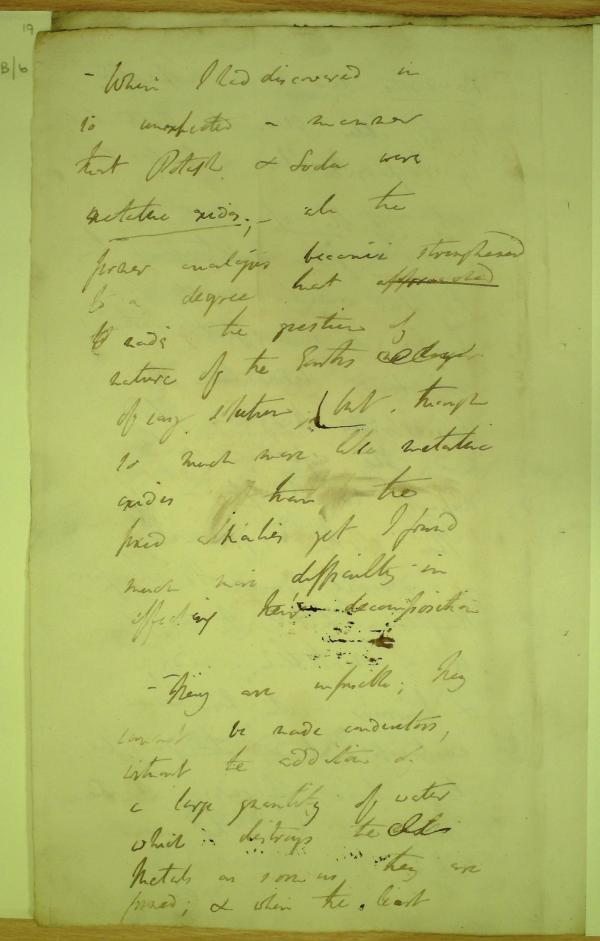 19
B/6
- When I had discovered in
so unexpected a manner
that Potash & Soda were
metallic oxides; - all the
former analogies became strengthened
to a degree that appeared
made the question of
nature of the Earths
of easy solution but, though
so much more like metallic
oxides than the
fixed alkalies yet I found
much more difficulty in
effecting their decomposition
- They are infusible; they
cannot be made conductors,
without the addition of
a large quantity of water
which destroys the
Metals as soon as they are
formed; & when the least